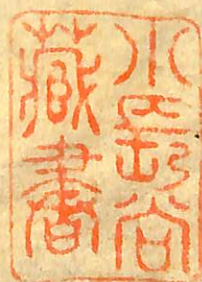 小谷
藏書